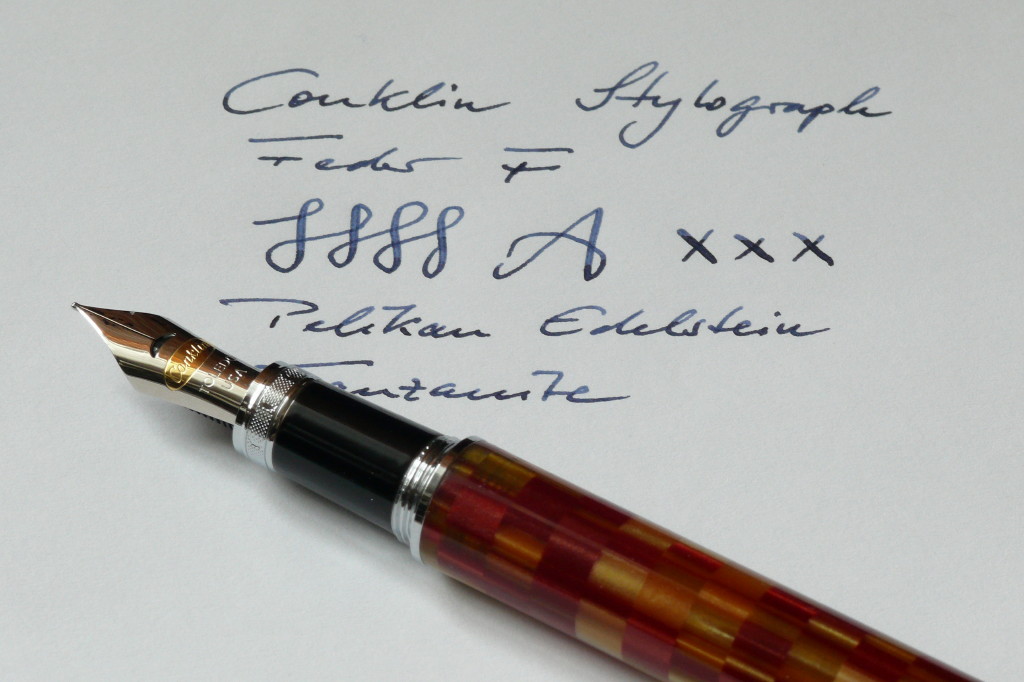 Conklin Stylograph
Feder F
A xxx
Pelikan Edelstein
Tanzanite
Conklin
TOLEDO
USA